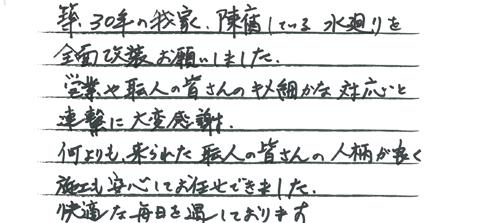 築30年の我家、陳腐している水廻りを
全面改装お願いしました。
営業や職人の皆さんのキメ細かな対応と
連撃に大変感謝。
何よりも、来られた職人の皆さんの人柄が良く
施工も安心してお任せできました。
快適な毎日を過しております